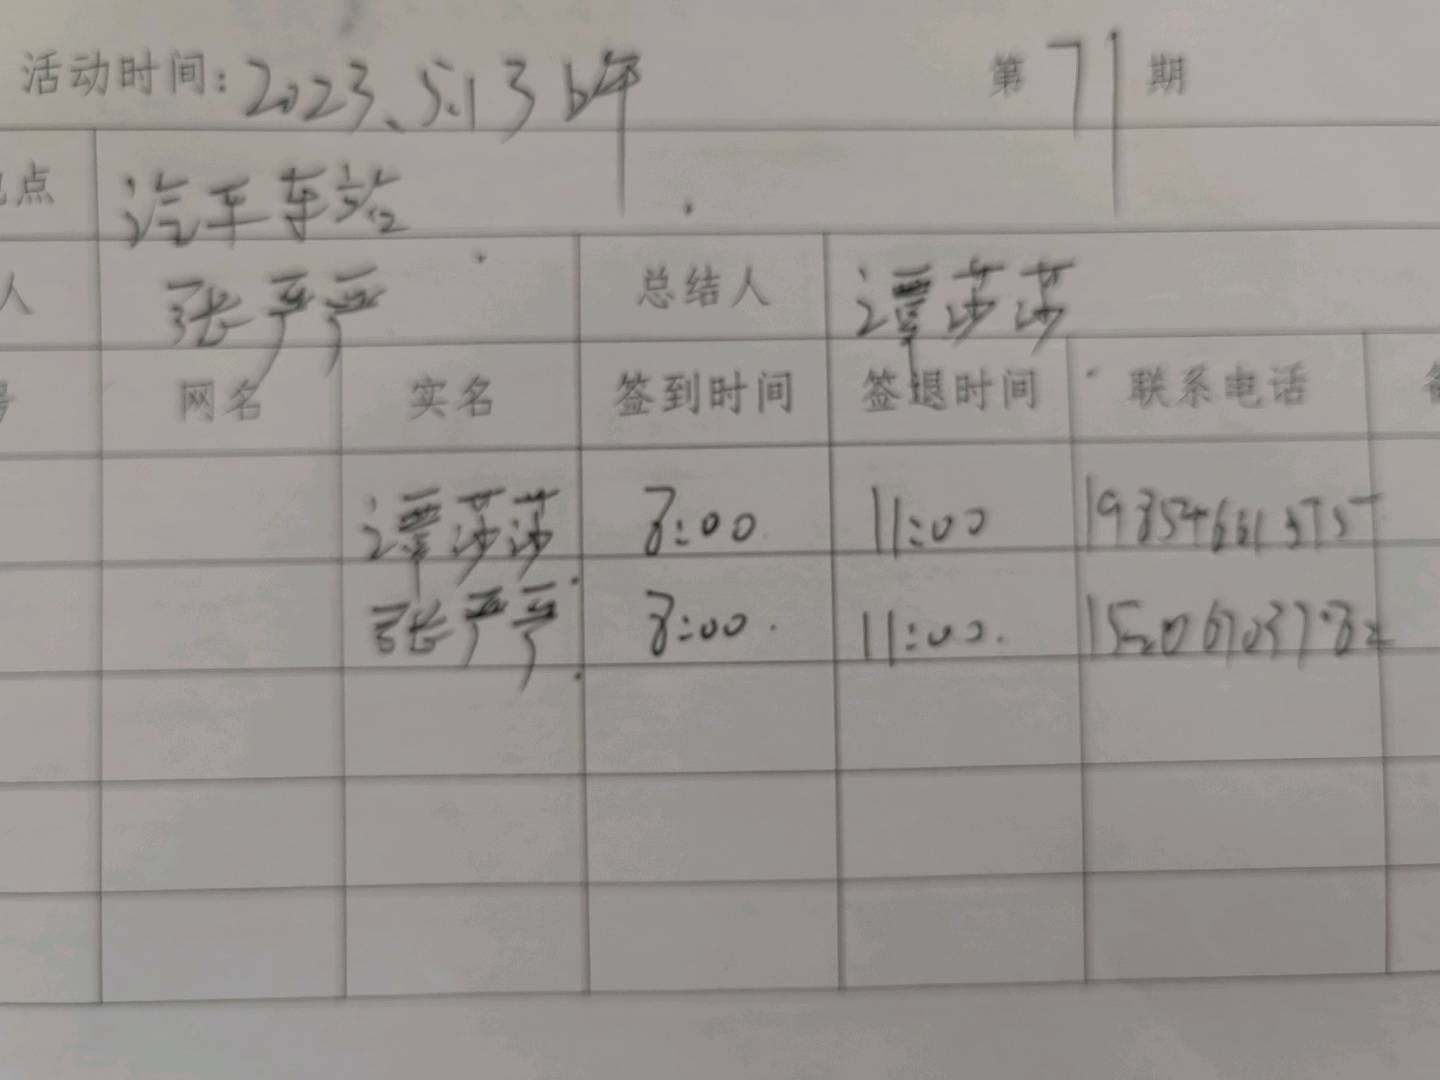 活动时间:2023、5.13上午 第71期
点 汽车车站
人 张严严 总结人 谭莎莎
号 网名 实名 签到时间 签退时间 联系电话
谭莎莎 8:00 11:00
张严严 8:00 11:00